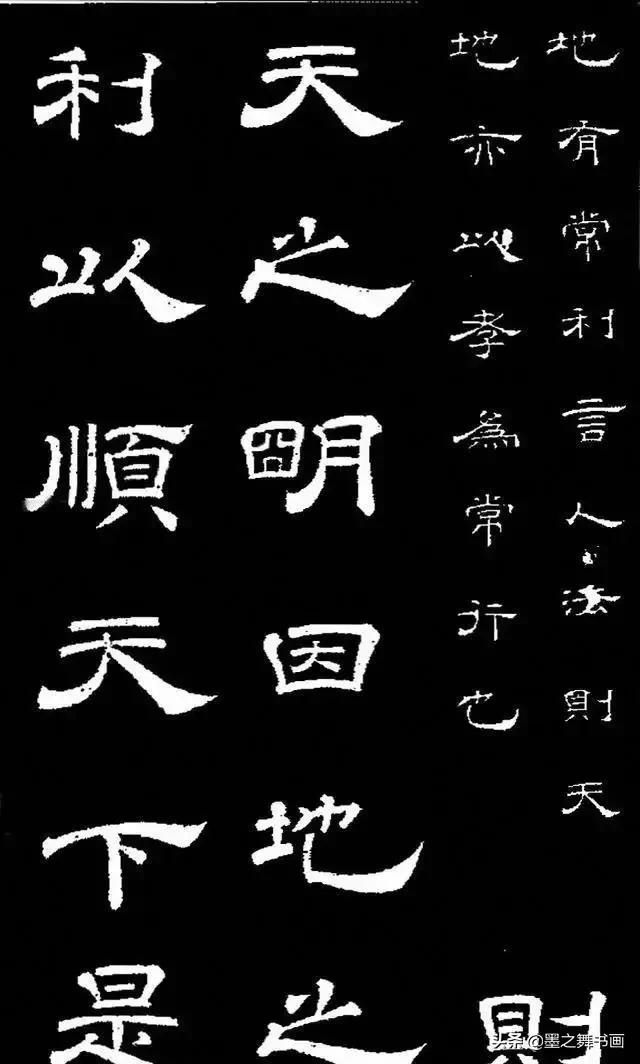 地有常利言人法則天
地亦以孝為常行也
則
天之明因地之
利以順天下是
头条@墨之舞书画